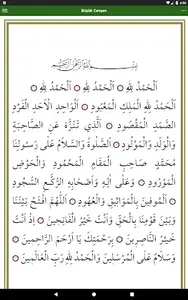 Büyük Cevşen
بِسْمِ اللّٰهِ الرَّحْمٰنِ الرَّحِيمِ
اَلْحَمْدُ لِلّٰهِ ۞ اَلْحَمْدُ لِلّٰهِ ۞ اَلْحَمْدُ لِلّٰهِ
اَلْحَمْدُ لِلّٰهِ الْمَلِكِ الْمَعْبُودِ ۞ اَلْوَاحِدِ الْاَحَدِ الْفَرْدِ
الصَّمَدِ الْمَقْصُودِ ۞ اَلَّذِي تَنَزَّهَ عَنِ الصَّاحِبَةِ
وَالْوَلَدِ وَالْمَوْلُودِ ۞ اَلصَّلٰوةُ وَالسَّلَامُ عَلٰى رَسُولِنَا
مُحَمَّدٍ صَاحِبِ الْمَقَامِ الْمَحْمُودِ وَالْحَوْضِ
الْمَوْرُودِ ۞ وَعَلٰى اٰلِهِ وَاَصْحَابِهِ الرُّكَّعِ السُّجُودِ
۞ اَلْمُوفِينَ بِالْمَوَاثِيقِ وَالْعُهُودِ ۞ اَللّٰهُمَّ افْتَحْ بَيْنَنَا
وَبَيْنَ قَوْمِنَا بِالْحَقِّ وَاَنْتَ خَيْرُ الْفَاتِحِينَ ۞ وَاَنْتَ
خَيْرُ النَّاصِرِينَ ۞ بِرَحْمَتِكَ يَا اَرْحَمَ الرَّاحِمِينَ ۞
وَسَلَامٌ عَلَى الْمُرْسَلِينَ وَالْحَمْدُ لِلّٰهِ رَبِّ الْعَالَمِينَ